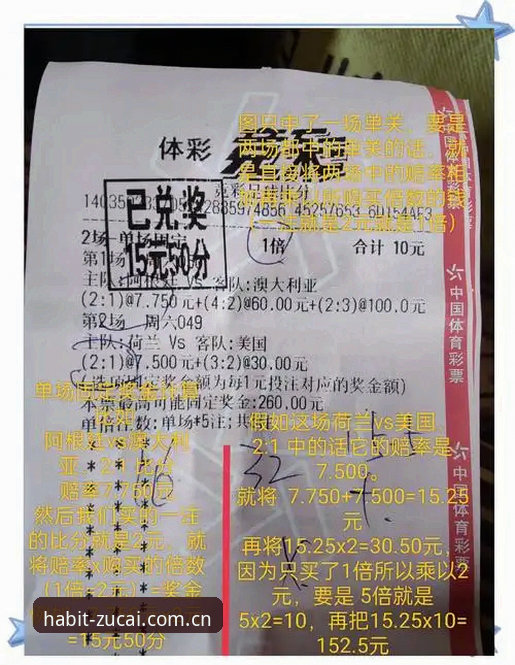 图只中了一场单关，要是
两场都中的单关的话，就
是直接将两场中的赔率相
加再乘以所购买倍数的钱
（一注就是2元就是1倍）
体彩 竞彩
竞彩足球比分
45257653 6D154AF3
已兑奖
15元50分
2场-单场固定
1倍 合计 10元
第1场
主队:阿根廷 Vs 客队:澳大利亚
(2:1)@7.750元+(4:2)@60.00元+(2:3)@100.0元
第2场 周六049
主队:荷兰 Vs 客队:美国
(2:1)@7.500元+(3:2)@30.00元
额为每1元投注对应的奖金额)
本票最高可能固定奖金:260.00元
单场*5注;共
中国体育彩票
中国体育彩票
单场固定奖金计算
阿根廷vs澳大利
亚 2:1 比分
赔率7.750元
然后我们买的一注
的比分就是2元，就
将赔率x购买的倍数
（1倍=2元）=奖金
=15元50分
假如这场荷兰vs美国
2:1 中的话它的赔率是
7.500。
就将 7.750+7.500=15.25
元
再将15.25x2=30.50元，
因为只买了1倍所以乘以2
元，要是 5倍就是
5x2=10，再把15.25x10=
152.5元
habit-zucai.com.cn